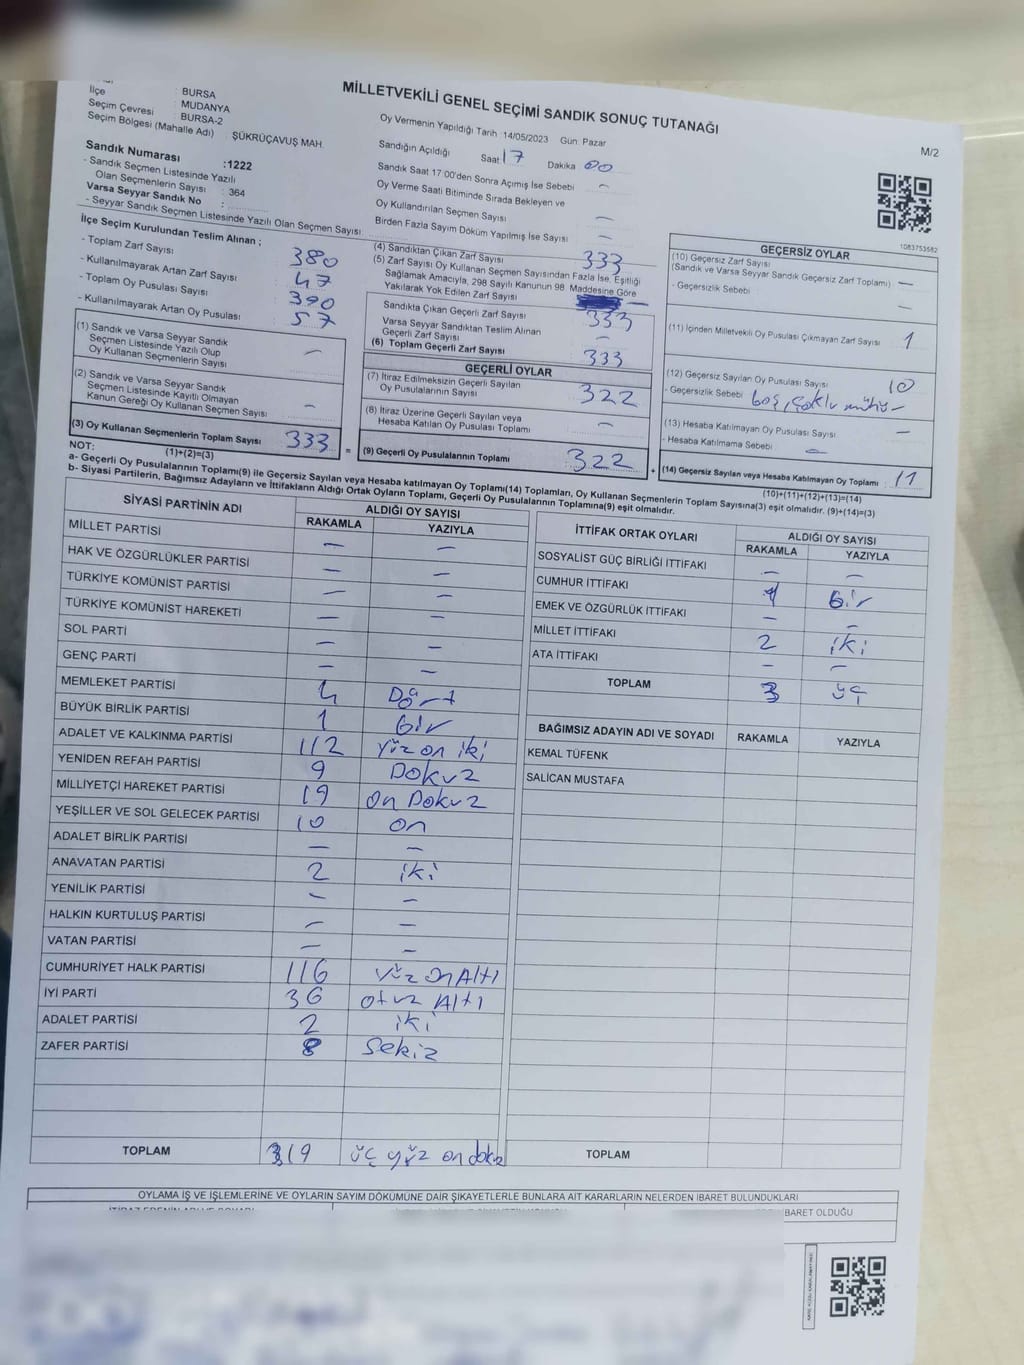 MİLLETVEKİLİ GENEL SEÇİMİ SANDIK SONUÇ TUTANAĞI
M/2
: BURSA
İlçe : MUDANYA
Seçim Çevresi : BURSA-2
Seçim Bölgesi (Mahalle Adı) : ŞÜKRÜÇAVUŞ MAH.
Sandık Numarası :1222
- Sandık Seçmen Listesinde Yazılı
Olan Seçmenlerin Sayısı : 364
Varsa Seyyar Sandık No :
- Seyyar Sandık Seçmen Listesinde Yazılı Olan Seçmen Sayısı :
Oy Vermenin Yapıldığı Tarih 14/05/2023 Gün: Pazar
Sandığın Açıldığı Saat 17 Dakika 00
Sandık Saat 17:00'den Sonra Açımış İse Sebebi –
Oy Verme Saati Bitiminde Sırada Bekleyen ve
Oy Kullandırılan Seçmen Sayısı –
Birden Fazla Sayım Döküm Yapılmış İse Sayısı –
1083753582
İlçe Seçim Kurulundan Teslim Alınan ;
- Toplam Zarf Sayısı 380
- Kullanılmayarak Artan Zarf Sayısı 47
- Toplam Oy Pusulası Sayısı 390
- Kullanılmayarak Artan Oy Pusulası 57
(1) Sandık ve Varsa Seyyar Sandık
Seçmen Listesinde Yazılı Olup
Oy Kullanan Seçmenlerin Sayısı –
(2) Sandık ve Varsa Seyyar Sandık
Seçmen Listesinde Kayıtlı Olmayan
Kanun Gereği Oy Kullanan Seçmen Sayısı –
(3) Oy Kullanan Seçmenlerin Toplam Sayısı 333
(1)+(2)=(3)
(4) Sandıktan Çıkan Zarf Sayısı 333
(5) Zarf Sayısı Oy Kullanan Seçmen Sayısından Fazla İse, Eşitliği
Sağlamak Amacıyla, 298 Sayılı Kanunun 98. Maddesine Göre
Yakılarak Yok Edilen Zarf Sayısı –
Sandıkta Çıkan Geçerli Zarf Sayısı 333
Varsa Seyyar Sandıktan Teslim Alınan
Geçerli Zarf Sayısı –
(6) Toplam Geçerli Zarf Sayısı 333
GEÇERLİ OYLAR
(7) İtiraz Edilmeksizin Geçerli Sayılan
Oy Pusulalarının Sayısı 322
(8) İtiraz Üzerine Geçerli Sayılan veya
Hesaba Katılan Oy Pusulası Toplamı –
= (9) Geçerli Oy Pusulalarının Toplamı 322 +
GEÇERSİZ OYLAR
(10) Geçersiz Zarf Sayısı
(Sandık ve Varsa Seyyar Sandık Geçersiz Zarf Toplamı) –
- Geçersizlik Sebebi : –
(11) İçinden Milletvekili Oy Pusulası Çıkmayan Zarf Sayısı 1
(12) Geçersiz Sayılan Oy Pusulası Sayısı 10
- Geçersizlik Sebebi boş, çoklu mühür
(13) Hesaba Katılmayan Oy Pusulası Sayısı –
- Hesaba Katılmama Sebebi –
(14) Geçersiz Sayılan veya Hesaba Katılmayan Oy Toplamı 11
(10)+(11)+(12)+(13)=(14)
NOT:
a- Geçerli Oy Pusulalarının Toplamı(9) ile Geçersiz Sayılan veya Hesaba katılmayan Oy Toplamı(14) Toplamları, Oy Kullanan Seçmenlerin Toplam Sayısına(3) eşit olmalıdır. (9)+(14)=(3)
b- Siyasi Partilerin, Bağımsız Adayların ve İttifakların Aldığı Ortak Oyların Toplamı, Geçerli Oy Pusulalarının Toplamına(9) eşit olmalıdır.
SİYASİ PARTİNİN ADI ALDIĞI OY SAYISI
RAKAMLA YAZIYLA
MİLLET PARTİSİ – –
HAK VE ÖZGÜRLÜKLER PARTİSİ – –
TÜRKİYE KOMÜNİST PARTİSİ – –
TÜRKİYE KOMÜNİST HAREKETİ – –
SOL PARTİ – –
GENÇ PARTİ – –
MEMLEKET PARTİSİ 4 Dört
BÜYÜK BİRLİK PARTİSİ 1 bir
ADALET VE KALKINMA PARTİSİ 112 yüz on iki
YENİDEN REFAH PARTİSİ 9 Dokuz
MİLLİYETÇİ HAREKET PARTİSİ 19 on Dokuz
YEŞİLLER VE SOL GELECEK PARTİSİ 10 on
ADALET BİRLİK PARTİSİ – –
ANAVATAN PARTİSİ 2 iki
YENİLİK PARTİSİ – –
HALKIN KURTULUŞ PARTİSİ – –
VATAN PARTİSİ – –
CUMHURİYET HALK PARTİSİ 116 yüz on Altı
İYİ PARTİ 36 otuz Altı
ADALET PARTİSİ 2 iki
ZAFER PARTİSİ 8 Sekiz
TOPLAM 319 üç yüz on dokuz
İTTİFAK ORTAK OYLARI ALDIĞI OY SAYISI
RAKAMLA YAZIYLA
SOSYALİST GÜÇ BİRLİĞİ İTTİFAKI – –
CUMHUR İTTİFAKI 1 bir
EMEK VE ÖZGÜRLÜK İTTİFAKI – –
MİLLET İTTİFAKI 2 iki
ATA İTTİFAKI – –
TOPLAM 3 üç
BAĞIMSIZ ADAYIN ADI VE SOYADI RAKAMLA YAZIYLA
KEMAL TÜFENK
SALİCAN MUSTAFA
TOPLAM
OYLAMA İŞ VE İŞLEMLERİNE VE OYLARIN SAYIM DÖKÜMÜNE DAİR ŞİKAYETLERLE BUNLARA AİT KARARLARIN NELERDEN İBARET BULUNDUKLARI
İBARET OLDUĞU